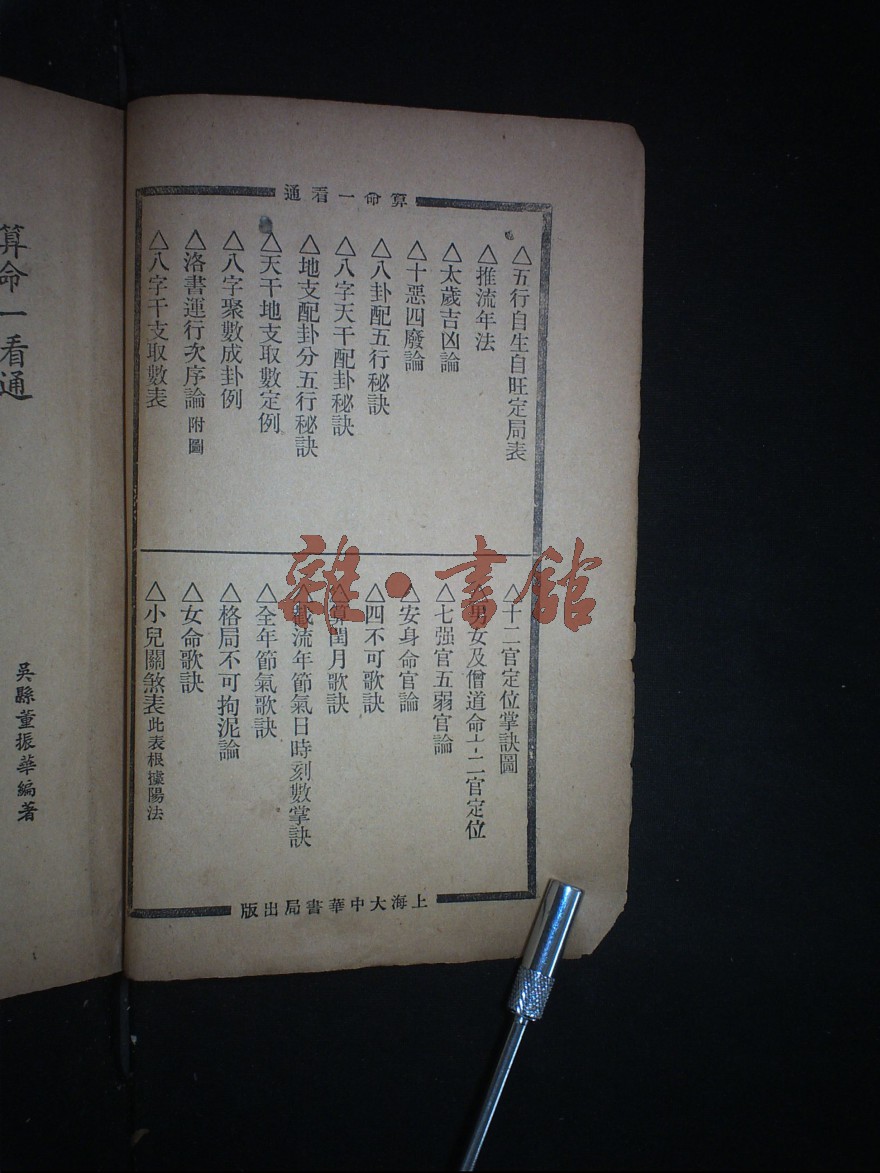 算命一看通
△五行自生自旺定局表
△推流年法
△太歲吉凶論
△十惡四廢論
△八卦配五行秘訣
△八字天干配卦秘訣
△地支配卦分五行秘訣
△天干地支取數定例
△八字聚數成卦例
△洛書運行次序論 附圖
△八字干支取數表
△十二官定位掌訣圖
△男女及僧道命十二官定位
△七强官五弱官論
△安身命官論
△四不可歌訣
△算閏月歌訣
△截流年節氣日時刻數掌訣
△全年節氣歌訣
△格局不可拘泥論
△女命歌訣
△小兒關煞表 此表根據陽法
上海大中華書局出版
算命一看通
吳縣董振華編著
雜·書館